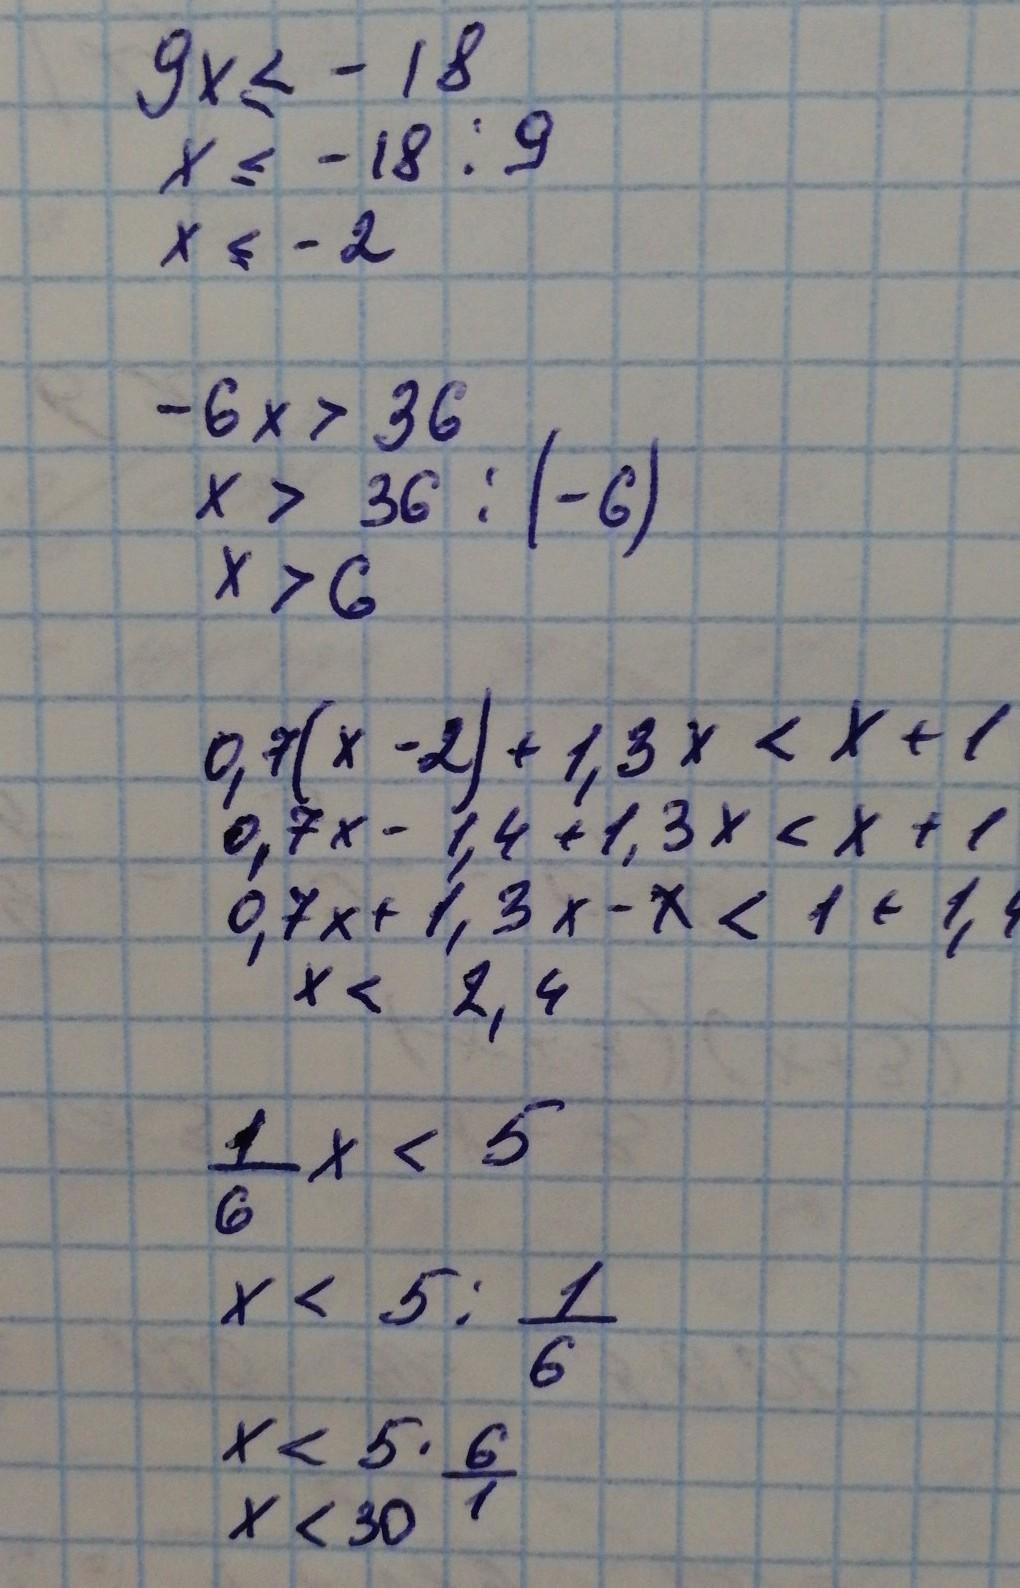 9x ≤ - 18
x ≤ -18 : 9
x ≤ -2
-6x > 36
x > 36 : (-6)
x > 6
0,7(x -2)+ 1,3x < x + 1
0,7x - 1,4 +1,3x < x + 1
0,7x + 1,3x - x < 1 + 1,4
x < 2,4
1/6 x < 5
x < 5 : 1/6
x < 5 · 6/1
x < 30